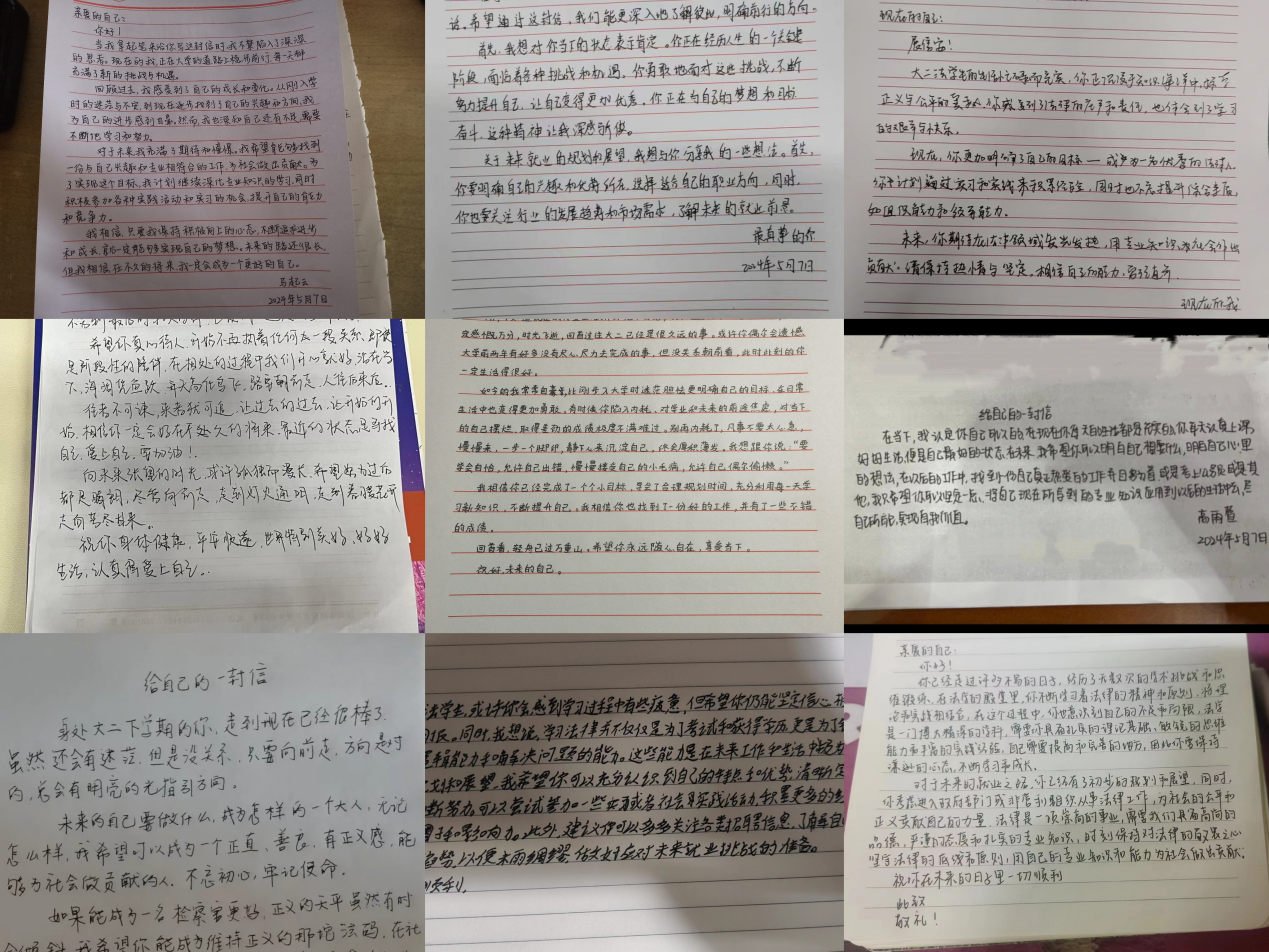 亲爱的自己:
你好!
当我拿起笔来给你写这封信时,我不禁陷入了深深
的思考。现在的我,正在大学的道路上稳步前行,每一天都
充满了新的挑战与机遇。
回顾过去,我感受到了自己的成长和变化。从刚入学
时的迷茫与不安,到现在逐步找到了自己的兴趣和方向,我
为自己的进步感到自豪。然而,我也深知自己还有不足,需要
不断地学习和努力。
对于未来,我充满了期待和憧憬。我希望能够找到
一份与自己兴趣和专业相符合的工作,为社会做出贡献。为
了实现这个目标,我计划继续深化专业知识的学习,同时
积极参加各种实践活动和实习的机会,提升自己的能力
和竞争力。
我相信,只要我保持积极向上的心态,不断追求进步
和成长,就一定能够实现自己的梦想。未来的路还很长,
但我相信,在不久的将来,我一定会成为一个更好的自己。
2024年5月7日
话。希望通过这封信,我们能更深入地了解彼此,明确前行的方向。
首先,我想对你当下的状态表示肯定。你正在经历人生的一个关键
阶段,面临着各种挑战和机遇。你勇敢地面对这些挑战,不断
努力提升自己,让自己变得更加优秀。你正在为自己的梦想和目标
奋斗,这种精神让我深感骄傲。
关于未来就业的规划和展望,我想与你分享我的一些想法。首先,
你要明确自己的兴趣和优势所在,选择适合自己的职业方向,同时,
你也要关注行业的发展趋势和市场需求,了解未来的就业前景。
最真挚的你
2024年5月7日
现在的自己:
展信安!
大二法学生的生活忙碌而充实,你正沉浸于知识海洋中,探寻
正义与公平的真谛。你感受到了法律的庄严和责任,也体会到了学习
的艰辛与快乐。
现在,你更加明确了自己的目标——成为一名优秀的法律人。
你计划通过实习和实践来积累经验,同时也不忘提升综合素质,
如组织能力和领导能力。
未来,你期待在法律领域发光发热,用专业知识为社会作出
贡献。请保持热情与坚定,相信自己的能力,勇往直前。
现在的我
希望你真心待人,开始不再执着任何去一段关系,即使
是阶段性的陪伴,在相处的过程中我们开心就好,活在当
下,海阔凭鱼跃,天高任鸟飞,路在朝前走,人往后来后。
往者不可谏,来者犹可追,让过去的过去,让开始的开
始,相信你一定会好在不久的将来,最近的状态是寻找
自己,爱上自己,要加油!
向未来张望的时光,或许孤独而漫长,希望努力过后
都是晴朗,尽管向前走,走到灯火通明,走到春暖花开
走向苦尽甘来。
祝你身体健康,平安快乐,一切特别美好,好好
生活,认真得爱上自己。
感慨万分,时光飞逝,回看过往大二已经是很久远的事,或许你偶尔会遗憾
大学前两年有好多没有尽心尽力去完成的事,但没关系朝前看,此时此刻的你
一定生活得很好。
如今的我常常自豪与比刚步入大学时迷茫胆怯更明确自己的目标,在日常
生活中也变得更加勇敢,有时候你陷入内耗,对学业和未来的前途焦虑,对当下
的自己摆烂,取得差劲的成绩极度不满难过。别再内耗了,凡事不要太心急,
慢慢来,一步一个脚印,静下心来沉淀自己,终会厚积薄发。我想跟你说:“要
学会自信,允许自己出错,慢慢接受自己的小毛病,允许自己偶尔偷懒。”
我相信你已经完成了一个个小目标,早实了合理规划时间,充分利用每一天学
习新知识,不断提升自己。我相信你也找到了一份好的工作,并有了一些不错
的成绩。
回首看,轻舟已过万重山。希望你永远随心自在,享受当下。
祝好,未来的自己。
给自己的一封信
在当下,我认定你自己
自己所能,实现自我价值。
高雨萱
2024年5月7日
给自己的一封信
身处大二下学期的你,走到现在已经很棒了,
虽然还会有迷茫,但是没关系,只要向前走,方向是对
的,总会有明亮的光指引方向。
未来的自己要做什么,成为怎样的一个大人,无论
怎么样,我希望可以成为一个正直、善良、有正义感,能
够为社会做贡献的人,不忘初心,牢记使命。
如果能成为一名检察官更好,正义的天平虽然有时
会倾斜,我希望你能成为维持正义的那坨法码,在社
法学生,或许你会感到学习过程中有些疲惫,但希望你仍能坚定信心,
同时,我想说,学习法律并不仅仅是为了考试和获得学历,更是为了
逻辑能力和解决问题的能力。这些能力是在未来工作和生活中
和展望,我希望你可以充分认识到自己的特点和优势,清晰
断努力,可以尝试参加一些实习或者社会实践活动,积累更多的
和影响力。此外,建议你可以多多关注各类招聘信息,了解每
趋势,以便未雨绸缪,做好应对未来就业挑战的准备。
顺利。
亲爱的自己:
你好!
你已经走过许多不易的日子,经历了无数次的学术挑战和思
维锻炼,在法学的殿堂里,你不断学习着法律的精神和原则,将理
论和实践相结合,在这个过程中,你也意识到自己的不足和局限,法学
是一门博大精深的学科,需要你具有扎实的理论基础、敏锐的思维
能力和丰富的实践经验,自己需要提高和完善的地方,因此你要保持
谦逊的心态,不断学习和成长。
对于未来的就业之路,你已经有了初步的规划和展望,同时,
你考虑进入政府部门或非营利组织从事法律工作,为社会的公平和
正义贡献自己的力量,法律是一项崇高的事业,需要我们具备高尚的
品德,严谨的态度和扎实的专业知识,时刻保持对法律的敬畏之心,
坚守法律的底线和原则,用自己的专业知识和能力为社会做出贡献。
祝你在未来的日子里一切顺利
此致
敬礼!